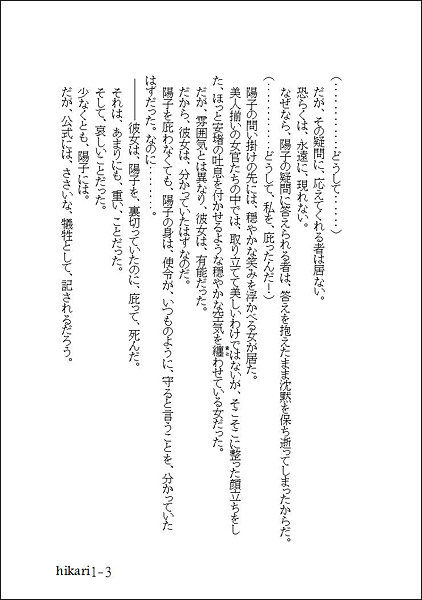 （・・・・・・・・・・どうして・・・・・）
だが、その疑問に、応えてくれる者は居ない。
恐らくは、永遠に、現れない。
なぜなら、陽子の疑問に答えられる者は、答えを抱えたまま沈黙を保ち逝ってしまったからだ。
（・・・・・・・・・・どうして、私を、庇ったんだ！）
陽子の問い掛けの先には、穏やかな笑みを浮かべる女が居た。
美人揃いの女官たちの中では、取り立てて美しいわけではないが、そこそこに整った顔立ちをし
た、ほっと安堵の吐息を付かせるような穏やかな空気を纏わせている女だった。
だが、雰囲気とは異なり、彼女は、有能だった。
だから、彼女は、分かっていたはずなのだ。
陽子を庇わなくても、陽子の身は、使令が、いつものように、守ると言うことを、分かっていた
はずだった。なのに・・・・・・・・。
――彼女は、陽子を、裏切っていたのに、庇って、死んだ。
それは、あまりにも、重い、ことだった。
そして、哀しいことだった。
少なくとも、陽子には。
だが、公式には、ささいな、犠牲として、記されるだろう。
hikari1-3